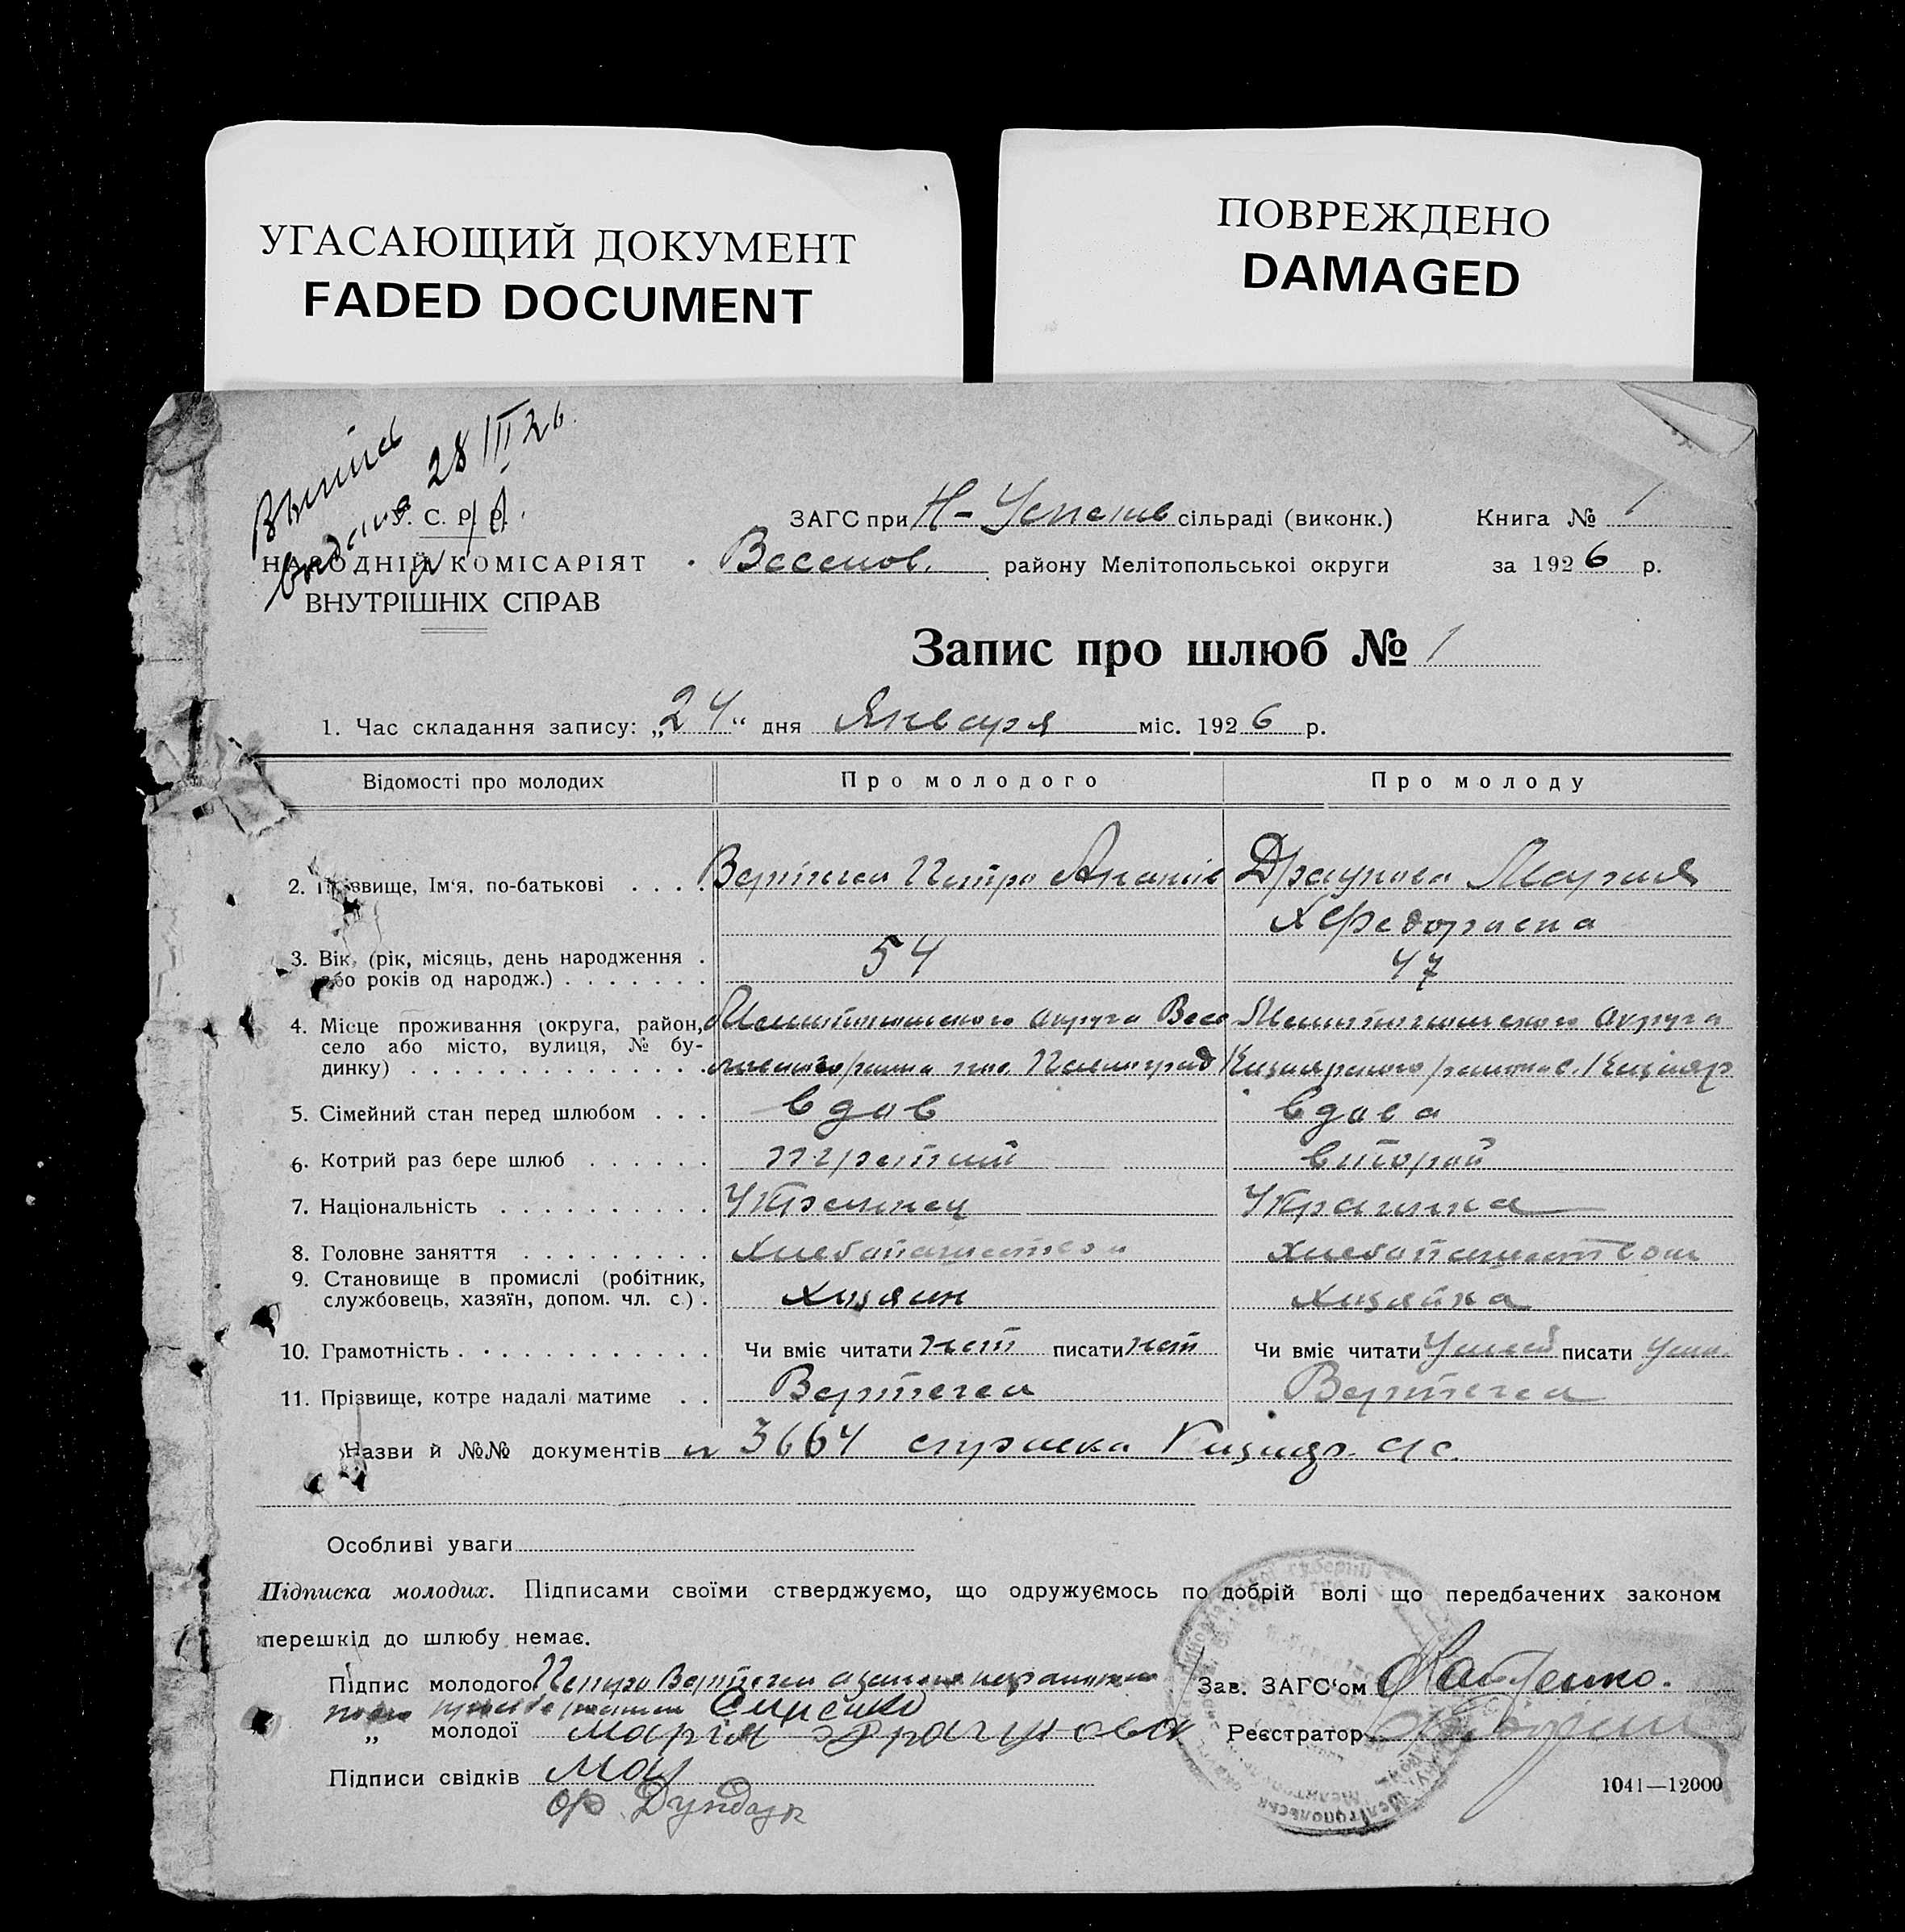 УГАСАЮЩИЙ ДОКУМЕНТ
FADED DOCUMENT
ПОВРЕЖДЕНО
DAMAGED
28/II 26.
У. С. Р. Р.
НАРОДНІЙ КОМІСАРІЯТ
ВНУТРІШНІХ СПРАВ
ЗАГС при Н-Успенив сільраді (виконк.)
Весенов. району Мелітопольської округи
Книга № 1
за 1926 р.
Запис про шлюб № 1
1. Час складання запису: „24“ дня Января міс. 1926 р.
Відомості про молодих
Про молодого
Про молоду
2. Прізвище, Ім'я, по-батькові . . . .
Вертегел Петро Ананів
Драгунова Мария
Хфедоровна
3. Вік, (рік, місяць, день народження .
або років од народж.) . . . . . . .
54
47
4. Місце проживання (округа, район,
село або місто, вулиця, № бу-
динку) . . . . . . . . . . . . . .
Мелитопольского округа Весе
Мелитопольского округа
5. Сімейний стан перед шлюбом . . .
вдов
вдова
6. Котрий раз бере шлюб . . . . . .
третий
второй
7. Національність . . . . . . . . . .
Украинец
Украинка
8. Головне заняття . . . . . . . . .
Хлебопашество
хлебопашеством
9. Становище в промислі (робітник,
службовець, хазяїн, допом. чл. с.) .
Хазяин
Хазяйка
10. Грамотність . . . . . . . . . . . .
Чи вміє читати нет писати нет
Чи вміє читати Умеет писати Уме.
11. Прізвище, котре надалі матиме . .
Вертегел
Вертегел
Назви й №№ документів № 3664 справка Кизияр. с/с.
Особливі уваги
Підписка молодих. Підписами своїми стверджуємо, що одружуємось по добрій волі що передбачених законом
перешкід до шлюбу немає.
Підпис молодого Петро Вертегел
„ молодої Марія Драгунова
Підписи свідків
Зав. ЗАГС'ом
Реєстратор
1041—12000